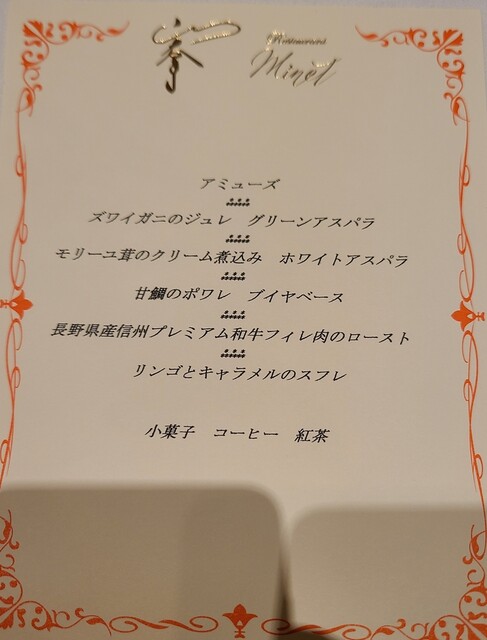 Restaurant
Minet
アミューズ
ズワイガニのジュレ　グリーンアスパラ
モリーユ茸のクリーム煮込み　ホワイトアスパラ
甘鯛のポワレ　ブイヤベース
長野県産信州プレミアム和牛フィレ肉のロースト
リンゴとキャラメルのスフレ
小菓子　コーヒー　紅茶